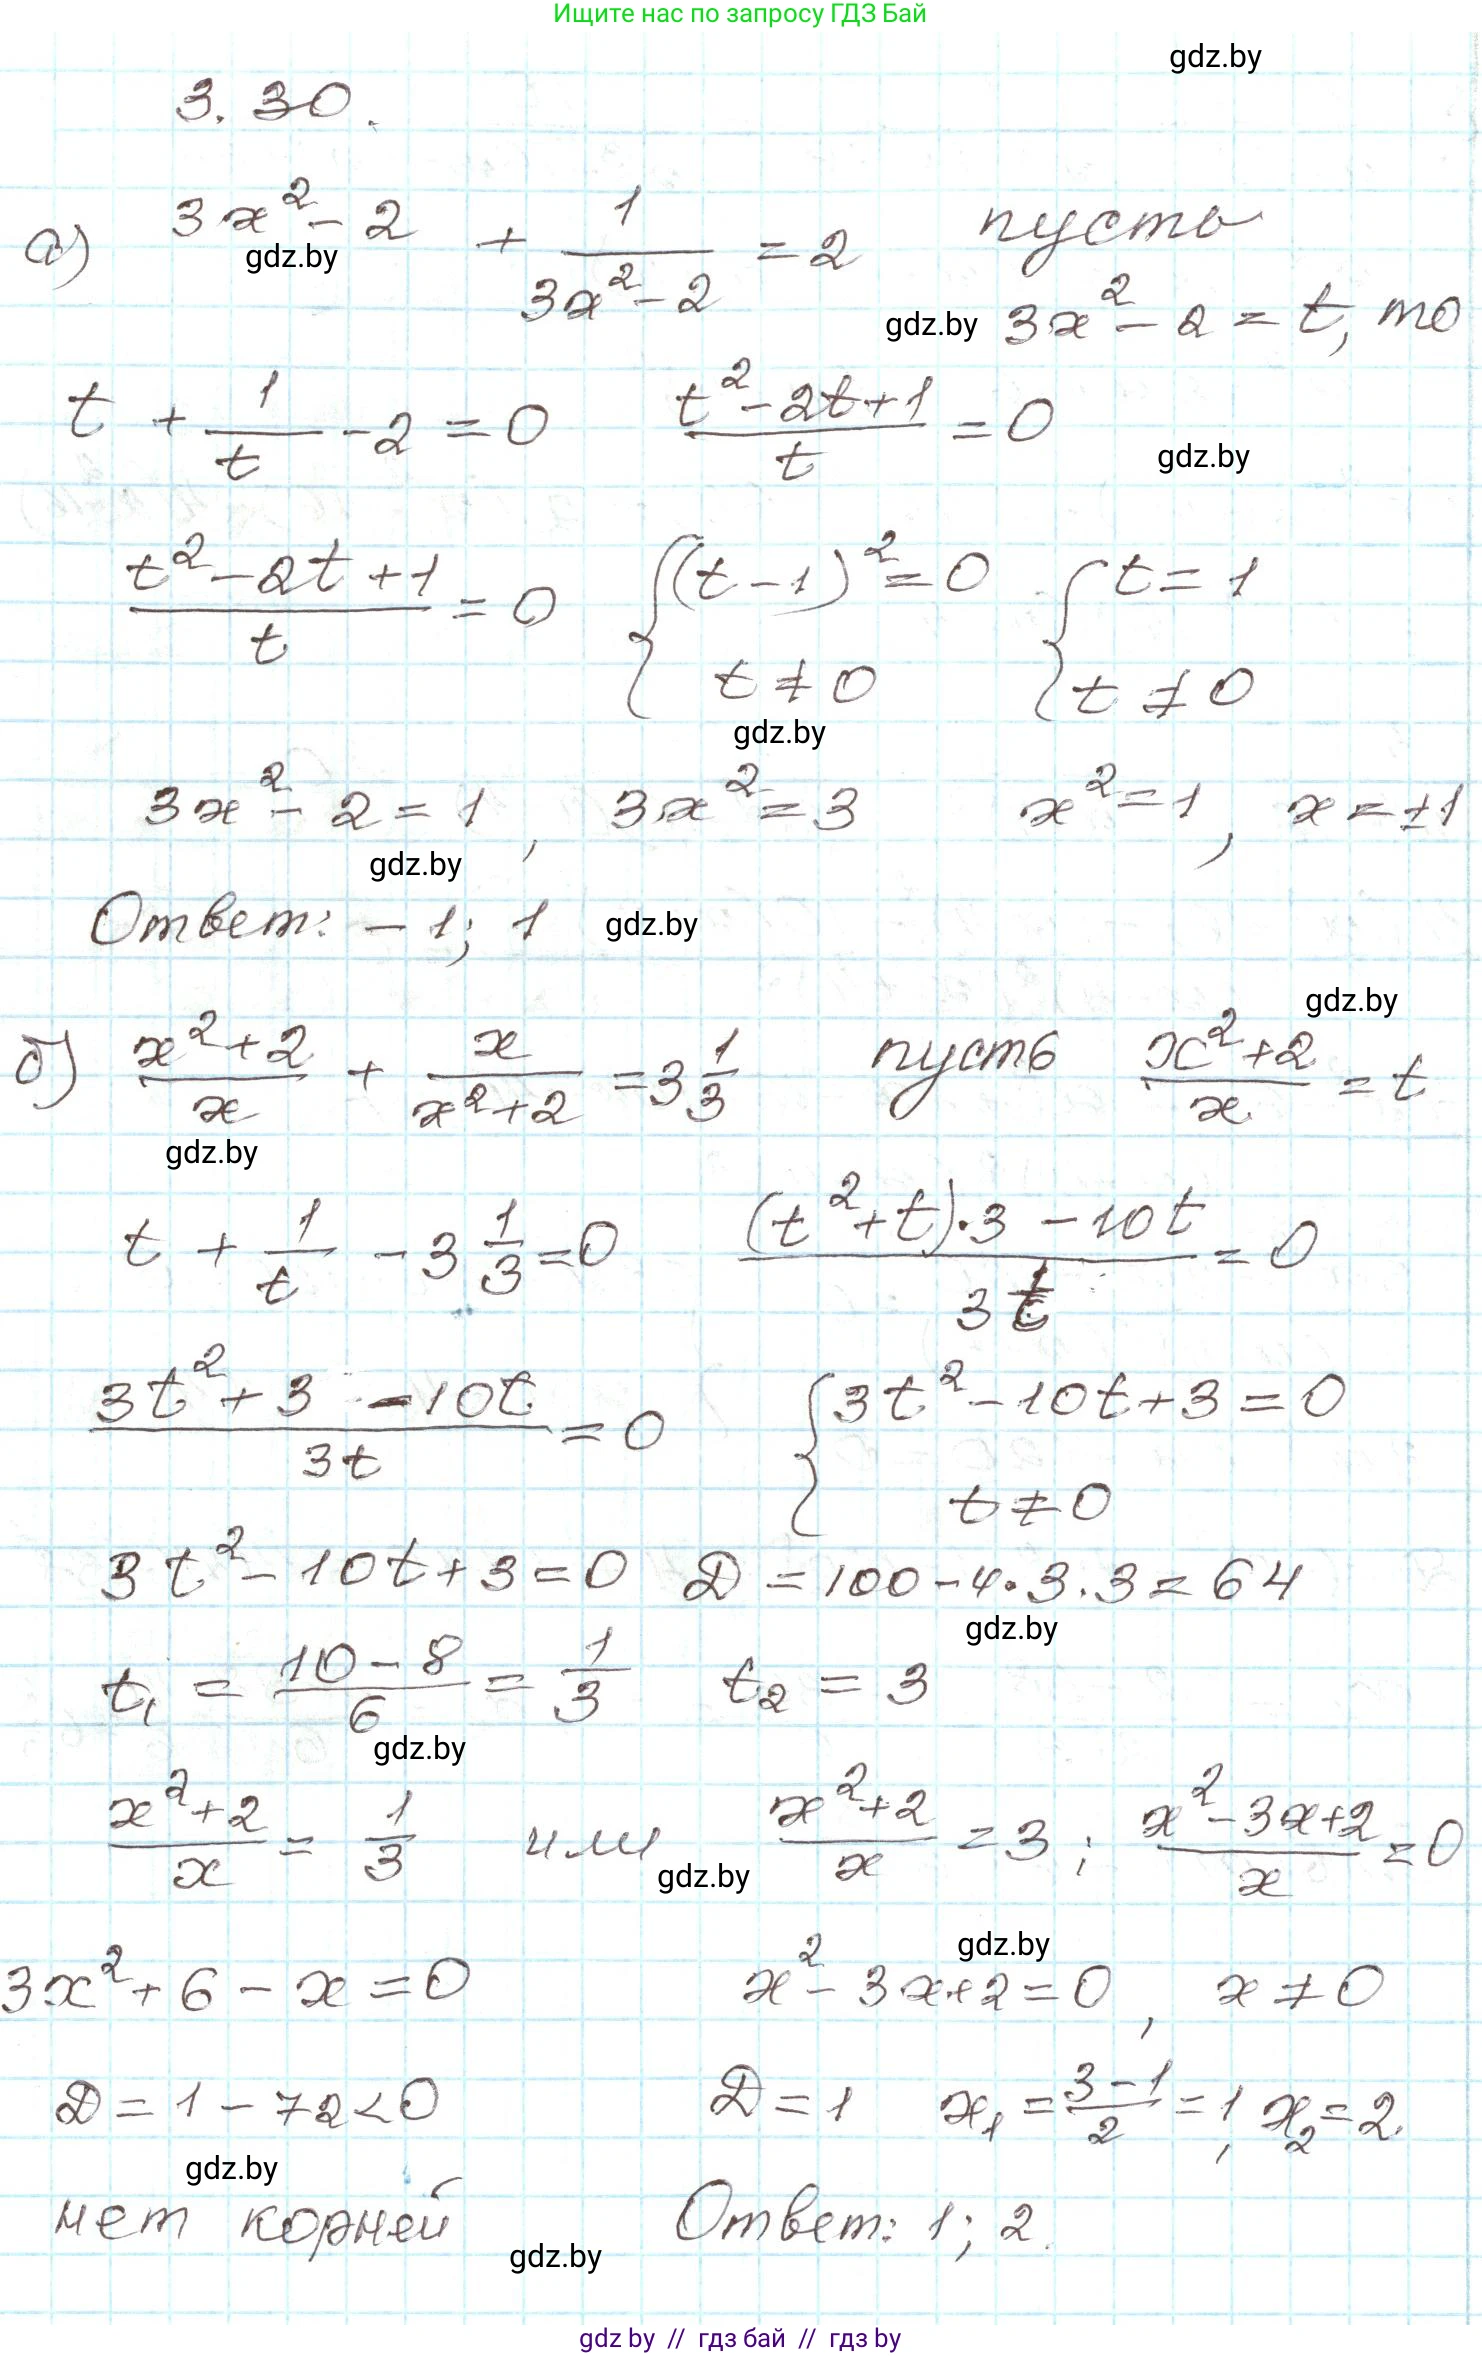 Ищите нас по запросу ГДЗ Бай
gdz.by
3.30.
а) 3x² - 2 + 1/(3x² - 2) = 2 пусть
gdz.by
gdz.by 3x² - 2 = t, то
t + 1/t - 2 = 0 (t² - 2t + 1)/t = 0
gdz.by
(t² - 2t + 1)/t = 0 { (t - 1)² = 0 { t = 1
t ≠ 0 t ≠ 0
gdz.by
3x² - 2 = 1, 3x² = 3 x² = 1, x = ±1
gdz.by
Ответ: -1; 1 gdz.by
gdz.by
б) (x² + 2)/x + x/(x² + 2) = 3 1/3 пусть (x² + 2)/x = t
gdz.by
t + 1/t - 3 1/3 = 0 ((t² + t)·3 - 10t)/(3t) = 0
(3t² + 3 - 10t)/(3t) = 0 { 3t² - 10t + 3 = 0
t ≠ 0
3t² - 10t + 3 = 0 D = 100 - 4·3·3 = 64
gdz.by
t₁ = (10 - 8)/6 = 1/3 t₂ = 3
gdz.by
(x² + 2)/x = 1/3 или (x² + 2)/x = 3; (x² - 3x + 2)/x = 0
gdz.by
gdz.by
3x² + 6 - x = 0 x² - 3x + 2 = 0, x ≠ 0
D = 1 - 72 < 0 D = 1 x₁ = (3 - 1)/2 = 1, x₂ = 2.
gdz.by
нет корней Ответ: 1; 2.
gdz.by
gdz by // гдз бай // гдз by